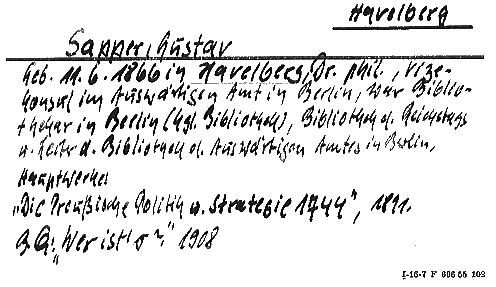 Havelberg
Sapper, Gustav
Geb. 11.6.1866 in Havelberg, Dr. phil., Vize-
konsul im Auswärtigen Amt in Berlin, war Biblio-
thekar in Berlin (Kgl. Bibliothek), Bibliothek d. Reichstags
u. Leiter d. Bibliothek d. Auswärtigen Amtes in Berlin,
Hauptwerke:
"Die Preußische Politik u. Strategie 1744", 1891.
BQ: "Wer ist's?" 1908
I-16-7 F 606 55 102